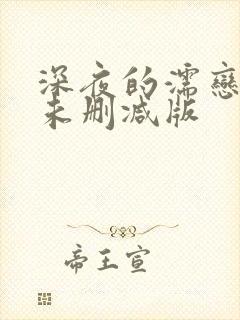 深夜的濡戀
未删减版
帝王宣